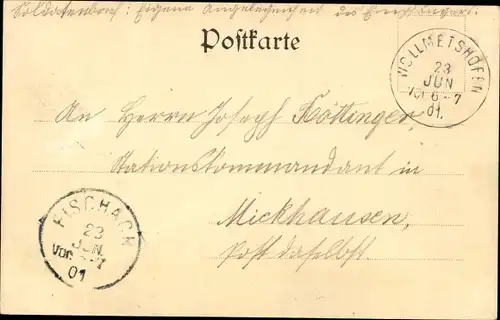 Soldatenbrief: Eigene Angelegenheit des Empfängers.
Postkarte
WOLLMETSHOFEN
23
JUN
Vor 6-7
01.
An Herrn Joseph Köttinger,
Stationskommandant in
Mickhausen,
Post daselbst.
FISCHACH
23
JUN.
VOR -7
01